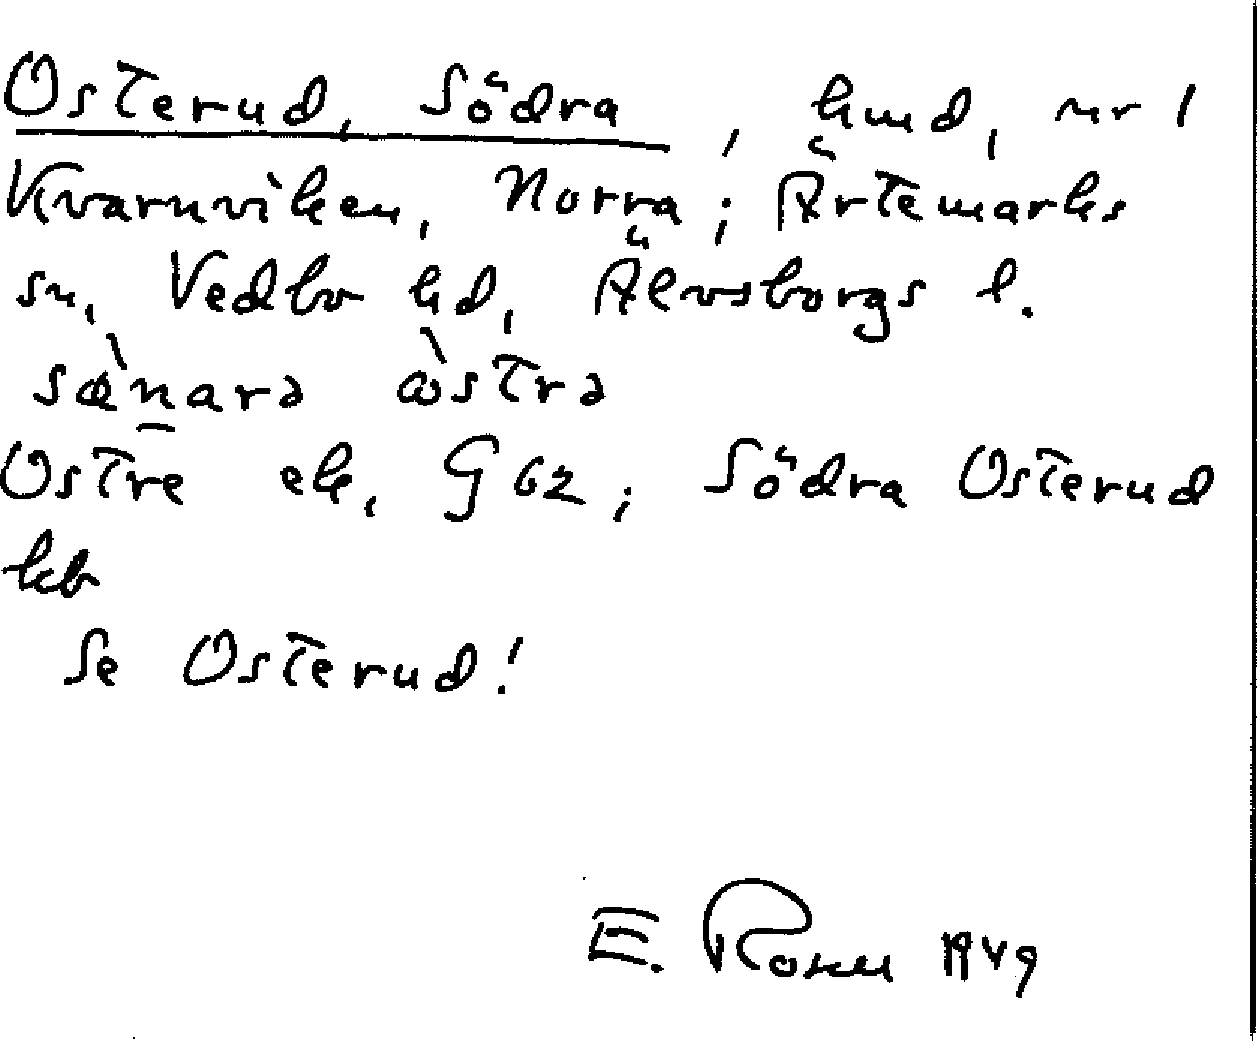 Osterud, Södra, hmd, nr 1
Kvarnviken, Norra; Ärtemarks
sn, Vedbo hd, Älvsborgs l.
sǿ̀n̲arə ꞷ̀strə
Ostre ek, G 62; Södra Osterud
kb
Se Osterud!
E. Rosen 1949